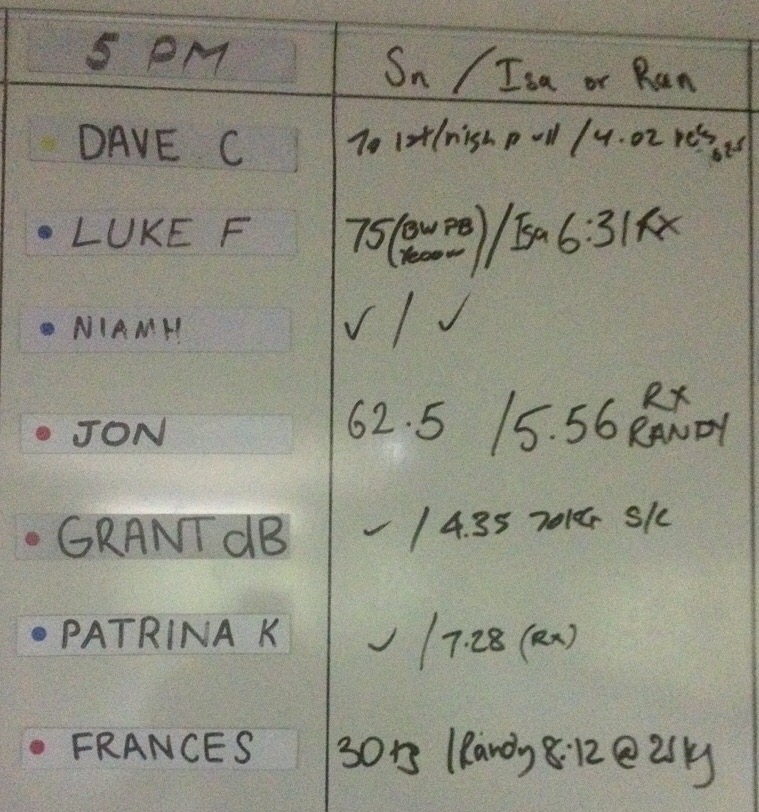 5 PM Sn / Isa or Ran
DAVE C 70 1st/high pull / 4.02
LUKE F 75 (BW PB) / Isa 6:31 RX
NIAMH ✓ / ✓
JON 62.5 / 5.56 RX RANDY
GRANT dB ✓ / 4.35 70KG S/C
PATRINA K ✓ / 7.28 (Rx)
FRANCES 30 / Randy 8:12 @ 25kg